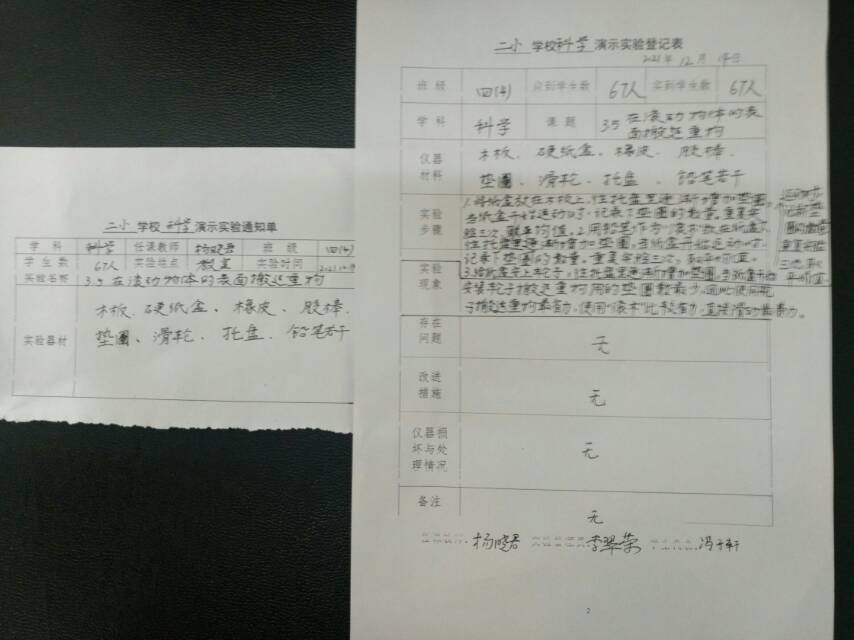 二小 学校 科学 演示实验通知单
学科 科学 任课教师 杨晓君 班级 四(4)
学生数 67人 实验地点 教室 实验时间
实验名称 3.5 在滚动物体的表面搬运重物
木板、硬纸盒、橡皮、胶棒、
实验器材 垫圈、滑轮、托盘、铅笔若干
二小 学校 科学 演示实验登记表
2021年12月14日
班级 四(4) 应到学生数 67人 实到学生数 67人
学科 科学 课题 3.5 在滚动物体的表
面搬运重物
仪器 木板、硬纸盒、橡皮、胶棒、
材料 垫圈、滑轮、托盘、铅笔若干
1.将纸盒放在木板上,往托盘里逐渐增加垫圈,
当纸盒开始运动时,记录下垫圈的数量,重复实
实验
步骤
验三次,取平均值。2.用铅笔作为“滚木”放在纸盒下
往托盘里逐渐增加垫圈,当纸盒开始运动时,
记录下垫圈的数量。重复实验三次,取平均值。
3.给纸盒安上轮子,往托盘里逐渐增加垫圈,当纸盒开始
运动时
记录垫
圈的数量
重复实验
三次,取
平均值
实验
现象
安装轮子搬运重物用的垫圈数最少,因此使用轮
子搬运重物最省力,使用“滚木”比较省力,直接滑动最费力。
存在
问题 无
改进
措施 无
仪器损
坏与处 无
理情况
备注 无
杨晓君 李翠荣 冯子轩
2